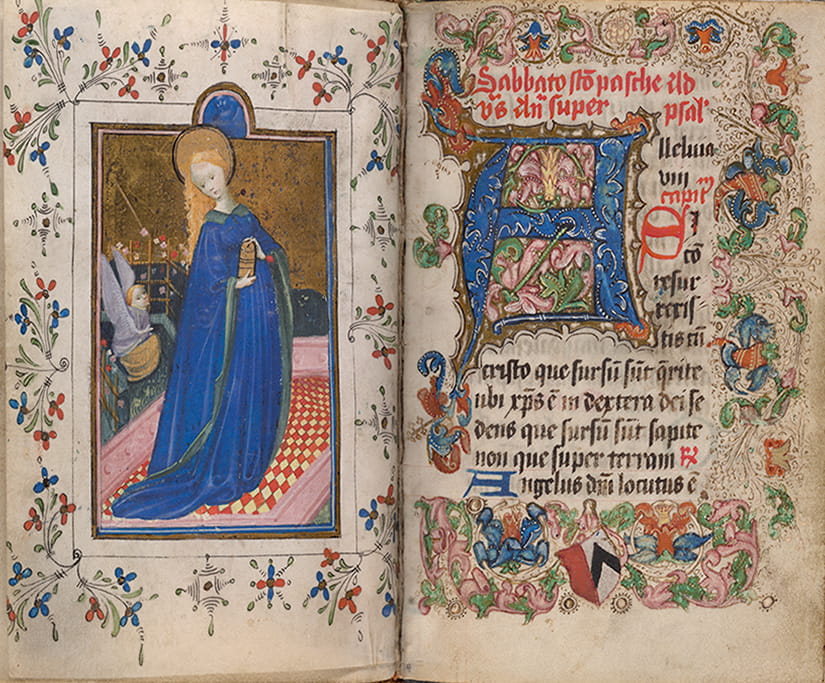 Sabbato scō pasche Ad
vs̄ Añ super psal'
Alleluia
viii
capitłm
Si
cō
resur
rexis-
tis cū
cristo que sursū sūt q̄rite
ubi xp̄s ē in dextera dei se
dens que sursū sūt sapite
non que super terram ℟
Angelus dn̄i locutus ē